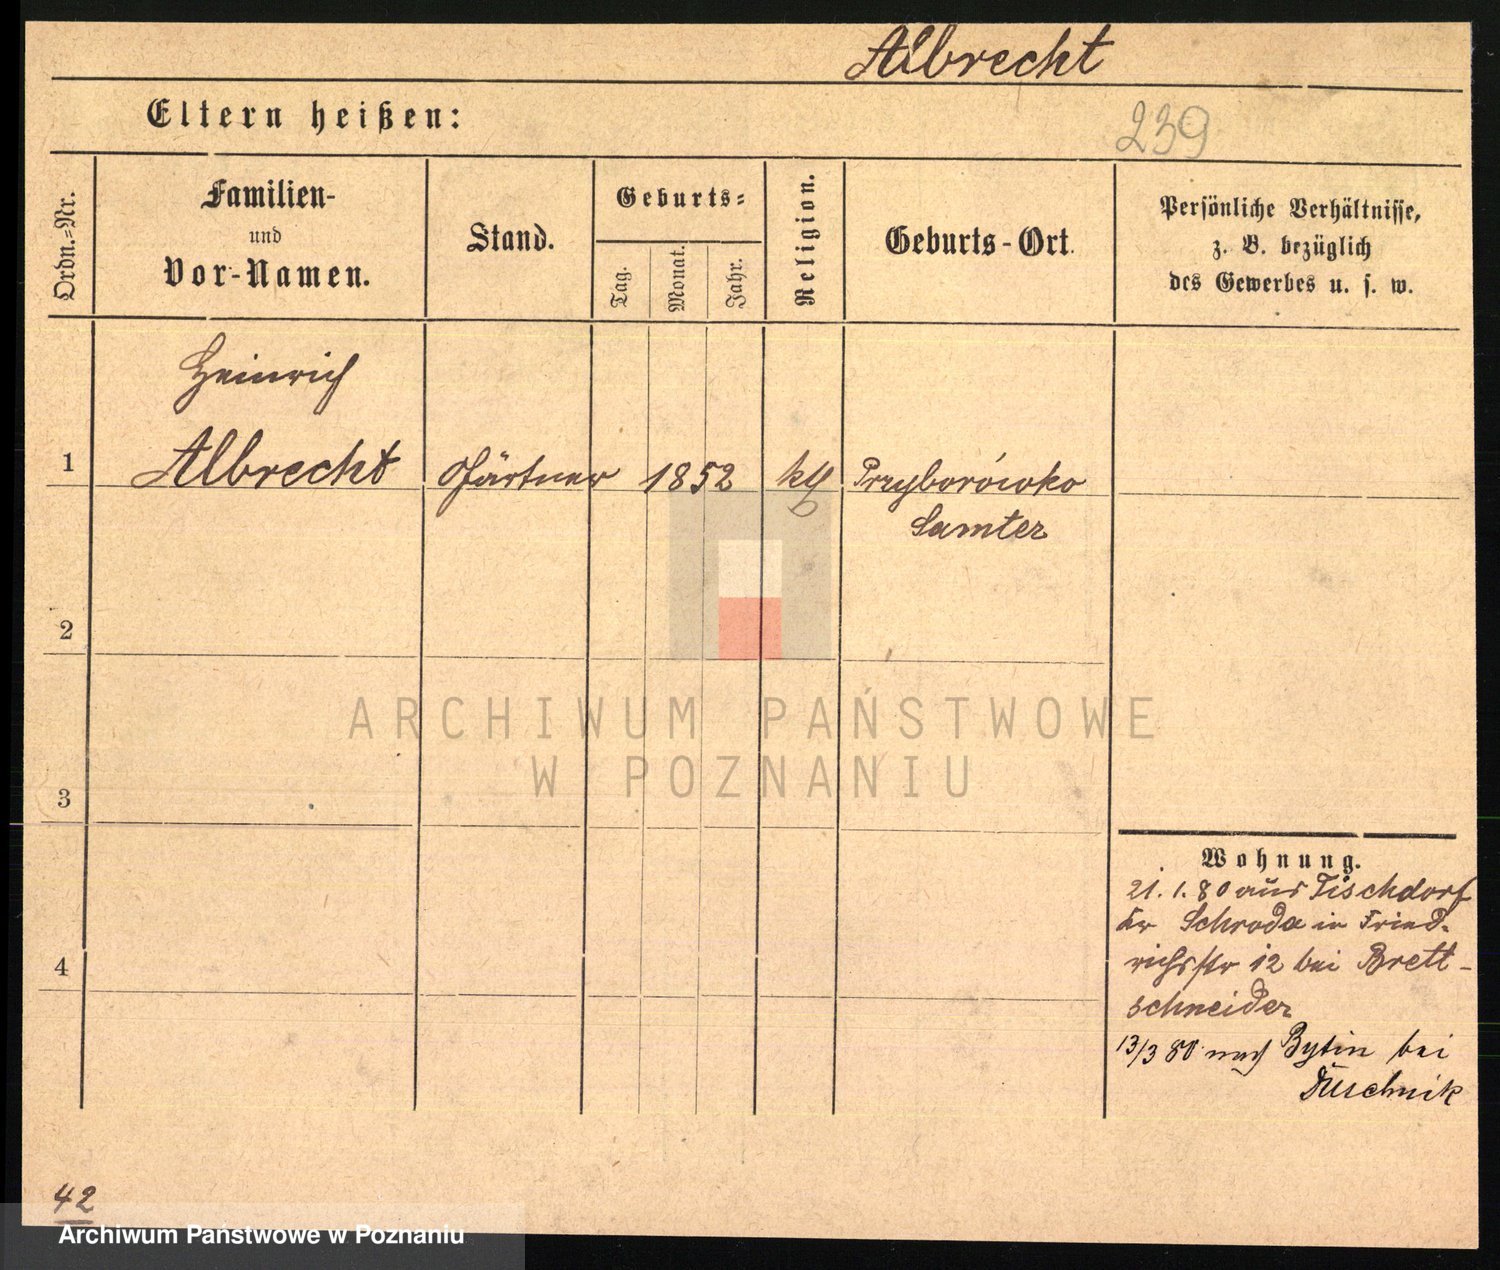 Albrecht
Eltern heißen:
239
Ordn.=Nr.
Familien-
und
Vor-Namen.
Stand.
Geburts=
Tag.
Monat.
Jahr.
Religion.
Geburts-Ort.
Persönliche Verhältnisse,
z. B. bezüglich
des Gewerbes u. s. w.
Heinrich
1 Albrecht Gärtner 1852 kth Przyborówko
Samter
2
3
4
Wohnung.
21.1.80 aus Tischdorf
Kr Schroda in Fried-
richsstr 12 bei Brett-
schneider
13/3 80 nach Bytin bei
Duschnik
42
ARCHIWUM PAŃSTWOWE
W POZNANIU
Archiwum Państwowe w Poznaniu